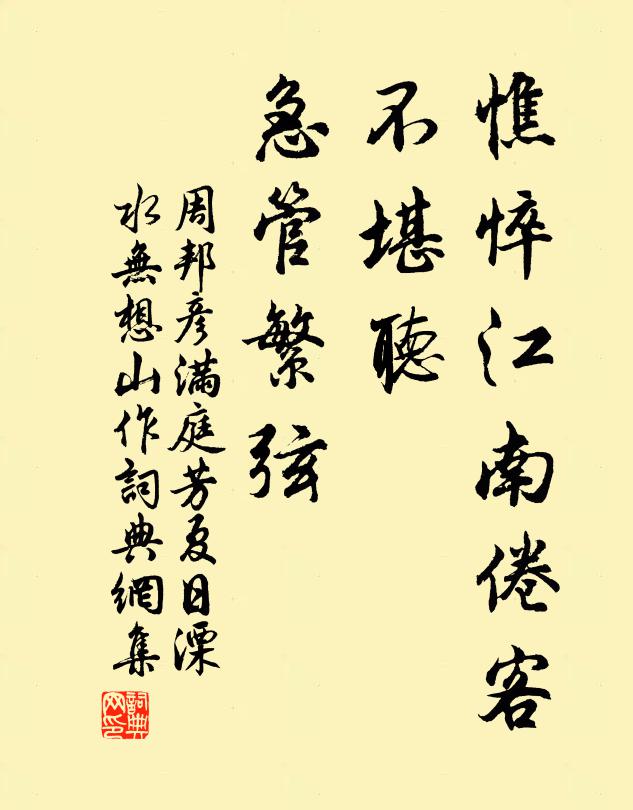 憔悴江南倦客
不堪聽
急管繁弦
周邦彦滿庭芳夏日溧
水無想山作詞典網集
詞典
网印